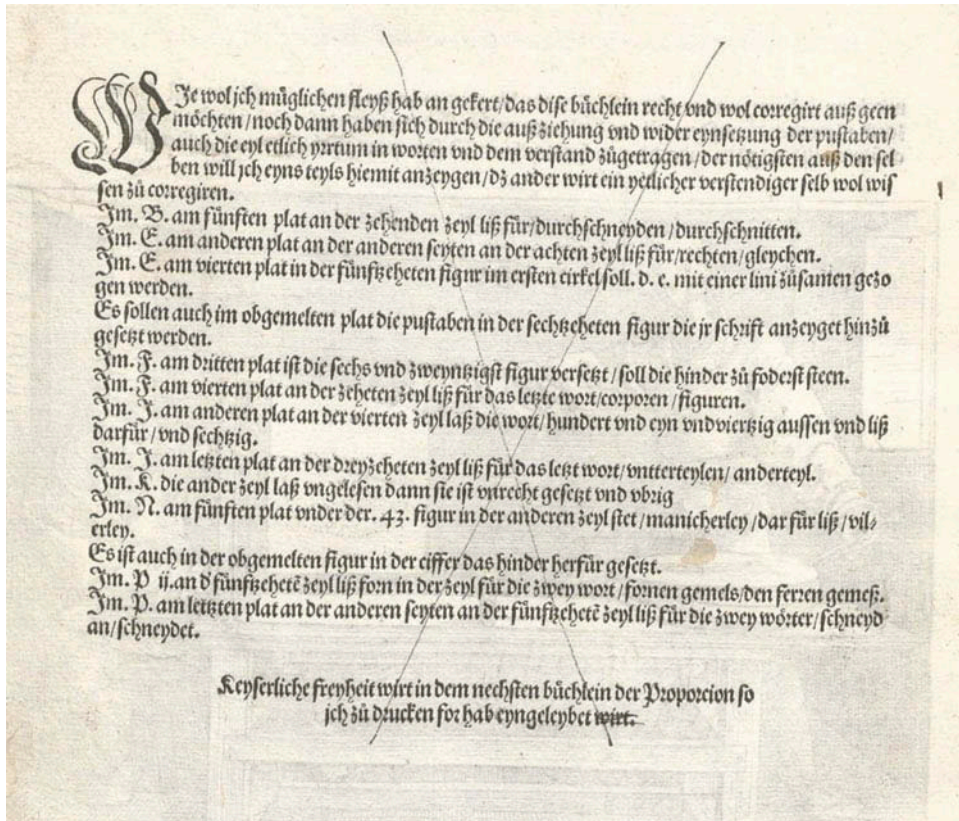 WJe wol jch müglichen fleyß hab an gekert/das dise büchlein recht vnd wol corregirt auß geen
möchten/noch dann haben sich durch die auß ziehung vnd wider eynsetzung der pustaben/
auch die eyl etlich yrrtum in worten vnd dem verstand zůgetragen/der nötigsten auß den sel
ben will jch eyns teyls hiemit anzeygen/dz ander wirt ein yetlicher verstendiger selb wol wis
sen zů corregiren.
Jm. B. am fünften plat an der zehenden zeyl liß für/durchschneyden/durchschnitten.
Jm. E. am anderen plat an der anderen seyten an der achten zeyl liß für/rechten/gleychen.
Jm. E. am vierten plat in der fünftzeheten figur im ersten cirkel soll. d. e. mit einer lini zůsamen gezo
gen werden.
Es sollen auch im obgemelten plat die pustaben in der sechtzeheten figur die jr schrift anzeyget hinzů
gesetzt werden.
Jm. F. am dritten plat ist die sechs vnd zweyntzigst figur versetzt/soll die hinder zů foderst steen.
Jm. F. am vierten plat an der zeheten zeyl liß für das letzte wort/corporen/figuren.
Jm. J. am anderen plat an der vierten zeyl laß die wort/hundert vnd eyn vnd viertzig aussen vnd liß
darfür/vnd sechtzig.
Jm. J. am letzten plat an der dreyzeheten zeyl liß für das letzt wort/vntterteylen/anderteyl.
Jm. K. die ander zeyl laß vngelesen dann sie ist vnrecht gesetzt vnd vbrig
Jm. N. am fünften plat vnder der. 43. figur in der anderen zeyl stet/manicherley/dar für liß/vil-
erley.
Es ist auch in der obgemelten figur in der ciffer das hinder herfür gesetzt.
Jm. P ij. an d̕ fünftzehetē zeyl liß forn in der zeyl für die zwey wort/fornen gemels/den ferren gemeß.
Jm. P. am letzten plat an der anderen seyten an der fünftzehetē zeyl liß für die zwey wörter/schneyd
an/schneydet.
Keyserliche freyheit wirt in dem nechsten büchlein der Proporcion so
jch zů drucken for hab eyngeleybet wirt.